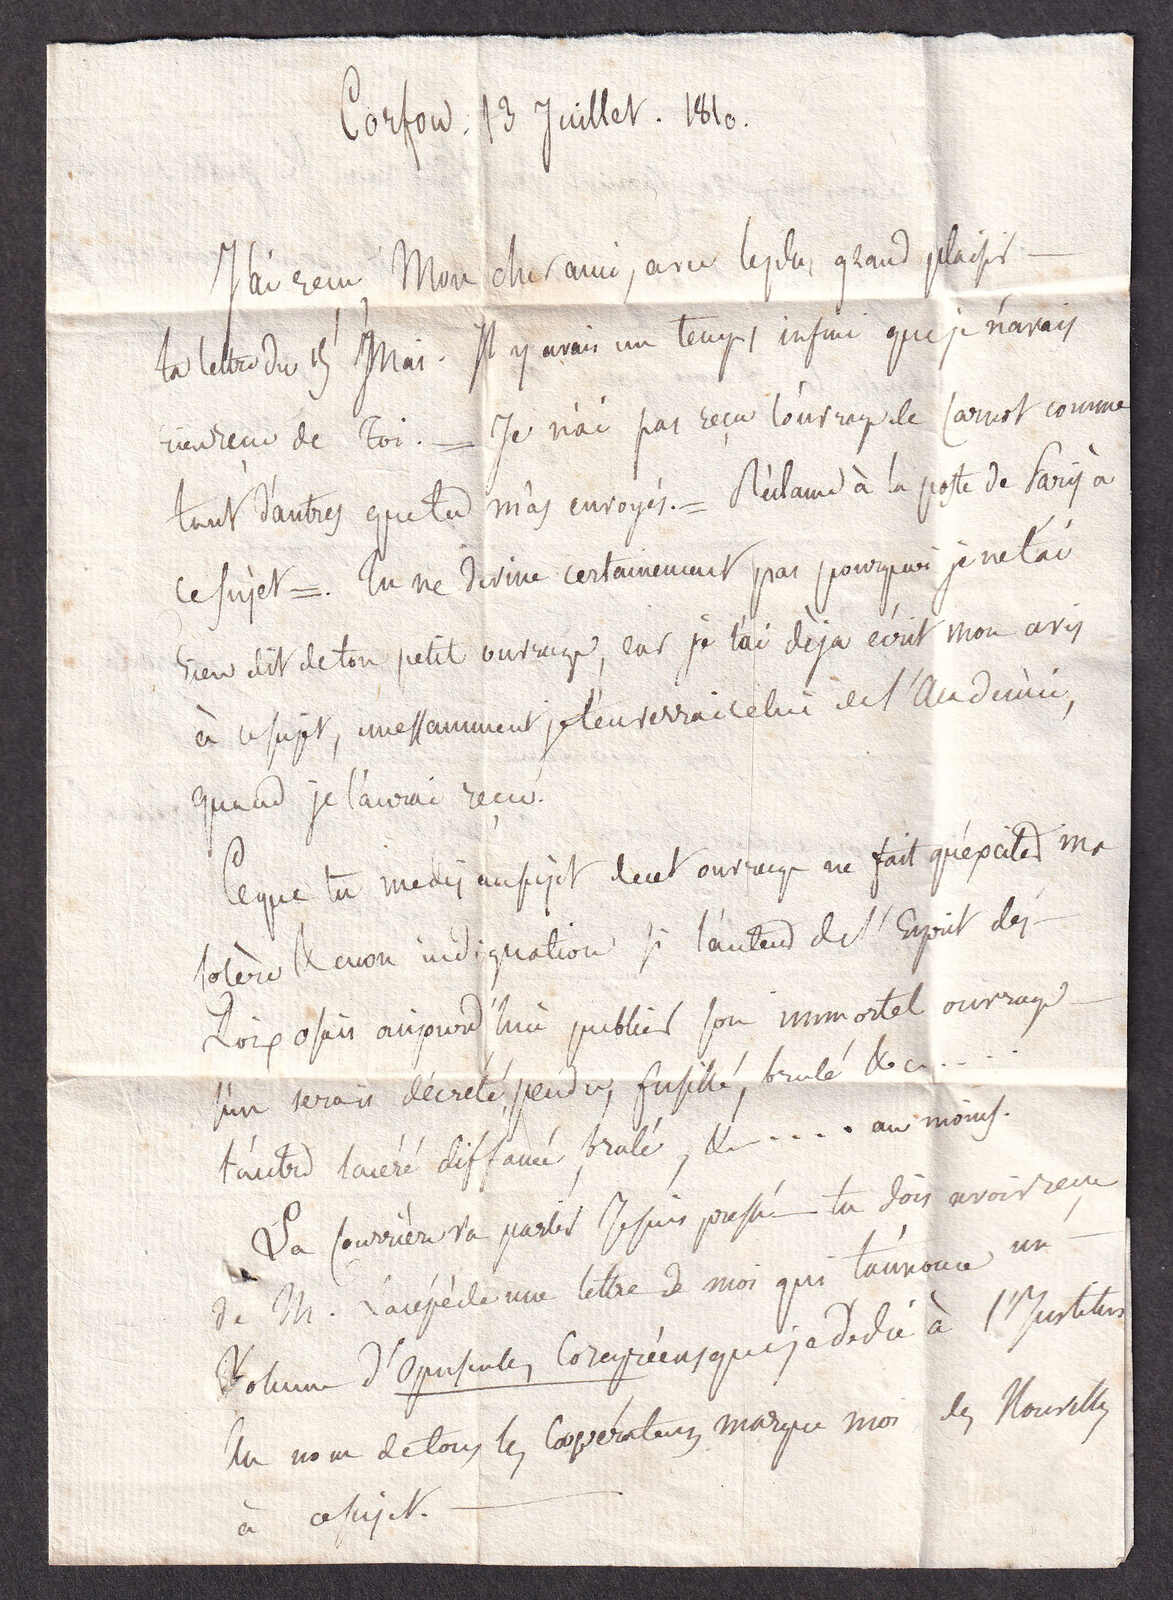 Corfou. 13 Juillet. 1810.
J'ai reçu Mon cher ami, avec le plus grand plaisir
ta lettre du 15 Mai. Il y avais un temps infini que je n'avais
rien reçu de Toi. = Je n'ai pas reçu l'ouvrage de Carnot comme
tant d'autres que tu m'as envoyés. = Réclame à la poste de Paris à
ce sujet =. Tu ne devine certainement pas pourquoi je ne t'ai
rien dit de ton petit ouvrage, car je t'ai déja écrit mon avis
à ce sujet, incessamment je t'enverrai celui de l'Académie,
quand je l'aurai reçu.
Ce que tu me dis au sujet de cet ouvrage ne fait qu'exciter ma
colère & mon indignation si l'auteur de l'Esprit des
Loix osais aujourd'hui publier son immortel ouvrage
l'un serais décreté, pendu, fusillé, brulé &c.....
l'autre lacéré diffamé, brulé, &.... au moins.
Le Courrière va partir Je suis pressé tu dois avoir reçu
de M. Lacépède une lettre de moi qui t'annonce un
Volume d'Opuscules Corcyréens que j'ai dedié à l'Institut
Au nom de tous les Coopérateurs marque moi des Nouvelles
à ce sujet.